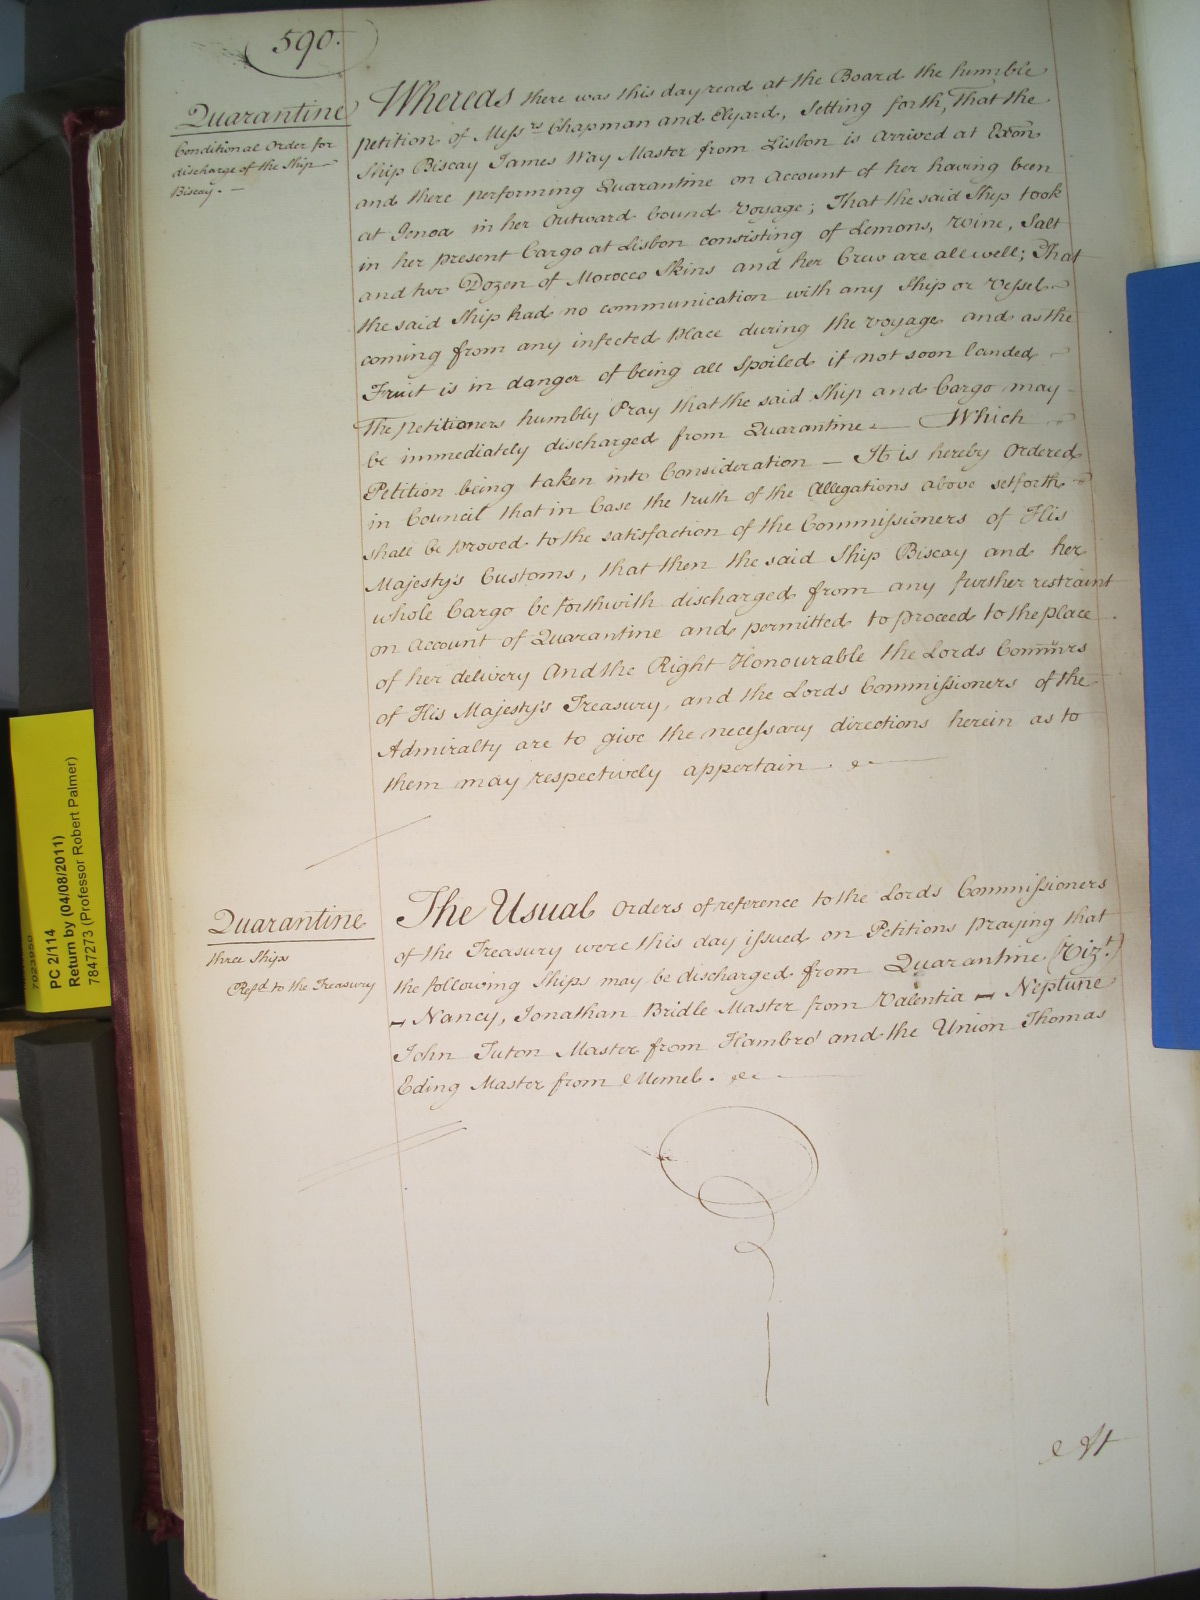 590.
Quarantine
Conditional Order for
discharge of the Ship
Biscay. —
Whereas there was this day read at the Board the humble
Petition of Messrs. Chapman and Elyard, Setting forth, That the
Ship Biscay James Way Master from Lisbon is arrived at Exon
and there performing Quarantine on Account of her having been
at Genoa in her Outward bound Voyage; That the said Ship took
in her present Cargo at Lisbon consisting of Lemons, Wine, Salt
and two Dozen of Morocco Skins and her Crew are all well; That
the said Ship had no communication with any Ship or Vessel
coming from any infected Place during the Voyage and as the
Fruit is in danger of being all Spoiled if not soon landed
The Petitioners humbly Pray that the said Ship and Cargo may
be immediately discharged from Quarantine — Which
Petition being taken into Consideration — It is hereby Ordered
in Council that in Case the truth of the Allegations above setforth
shall be proved to the satisfaction of the Commissioners of His
Majesty's Customs, that then the said Ship Biscay and her
whole Cargo be forthwith discharged from any further restraint
on Account of Quarantine and permitted to proceed to the place
of her delivery And the Right Honourable the Lords Commrs
of His Majesty's Treasury, and the Lords Commissioners of the
Admiralty are to give the necessary directions herein as to
them may respectively appertain.
Quarantine
three Ships
Refd. to the Treasury
The Usual Orders of reference to the Lords Commissioners
of the Treasury were this day issued on Petitions praying that
the following Ships may be discharged from Quarantine (Vizt.)
— Nancy, Jonathan Bridle Master from Valentia — Neptune
John Tuton Master from Hambro' and the Union Thomas
Eding Master from Memel.
At
PC 2/114
Return by (04/08/2011)
7847273 (Professor Robert Palmer)